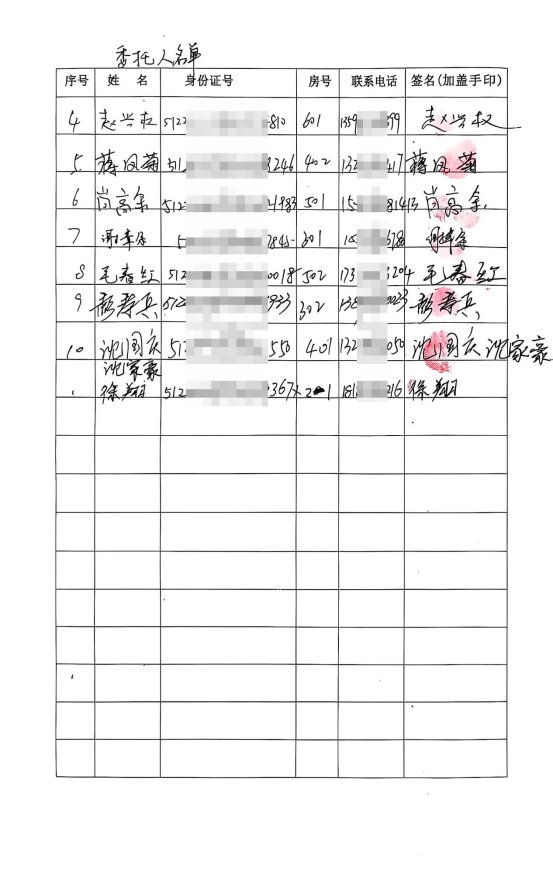 委托人名单
序号 姓 名 身份证号 房号 联系电话 签名(加盖手印)
4 赵兴权 5122 810 601 1359 399 赵兴权
5 蒋凤菊 512 3246 402 132 417 蒋凤菊
6 肖高余 512 21983 501 15 81413 肖高余
7 5 7845 301 15 678
8 毛春红 512 0018 502 173 3204 毛春红
9 5122 933 302 138 023
10 沈国庆 512 550 401 132 050 沈国庆 沈家豪
沈家豪
徐翔 512 367X 201 181 216 徐翔